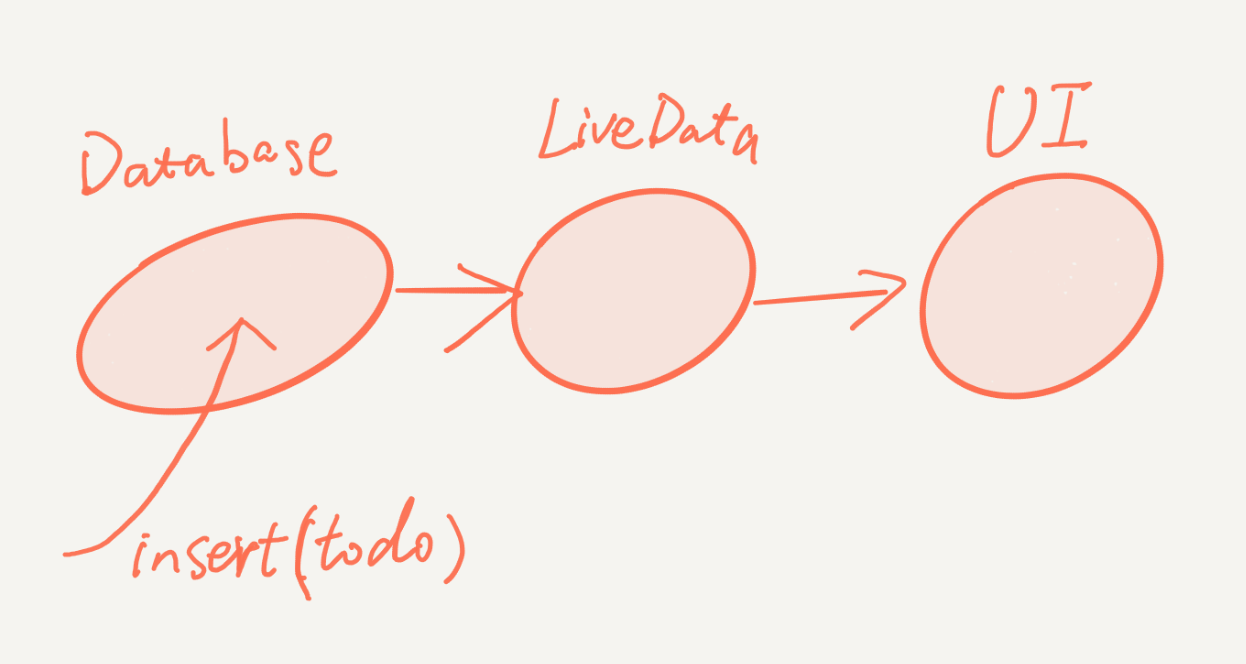 Database
LiveData
UI
insert(todo)